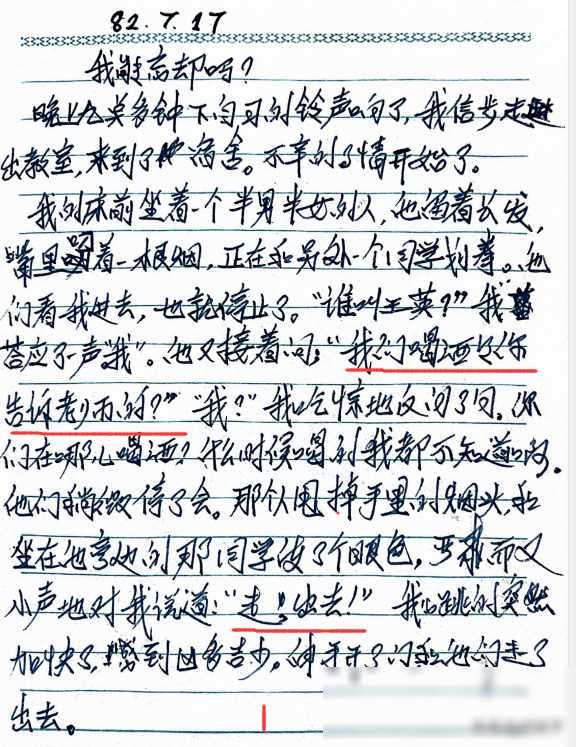 82.7.17
我能忘却吗?
晚上九点多钟下自习的铃声响了,我信步走
出教室,来到了宿舍。不幸的事情开始了。
我的床前坐着一个半男半女的人,他留着长发,
嘴里叼着一根烟,正在和另外一个同学划拳。他
们看我进去,也就停止了。“谁叫王英?”我
答应了声“我”。他又接着问:“我们喝酒是你
告诉老师的?”“我?”我吃惊地反问了句。你
们在哪儿喝酒?什么时候喝的我都不知道啊。
他们稍微停了会。那个甩掉手里的烟头,和
坐在他旁边的那同学使了个眼色,严肃而又
小声地对我说道:“走!出去!”我心跳的突然
加快了,感到凶多吉少。开了门和他们走了
出去。